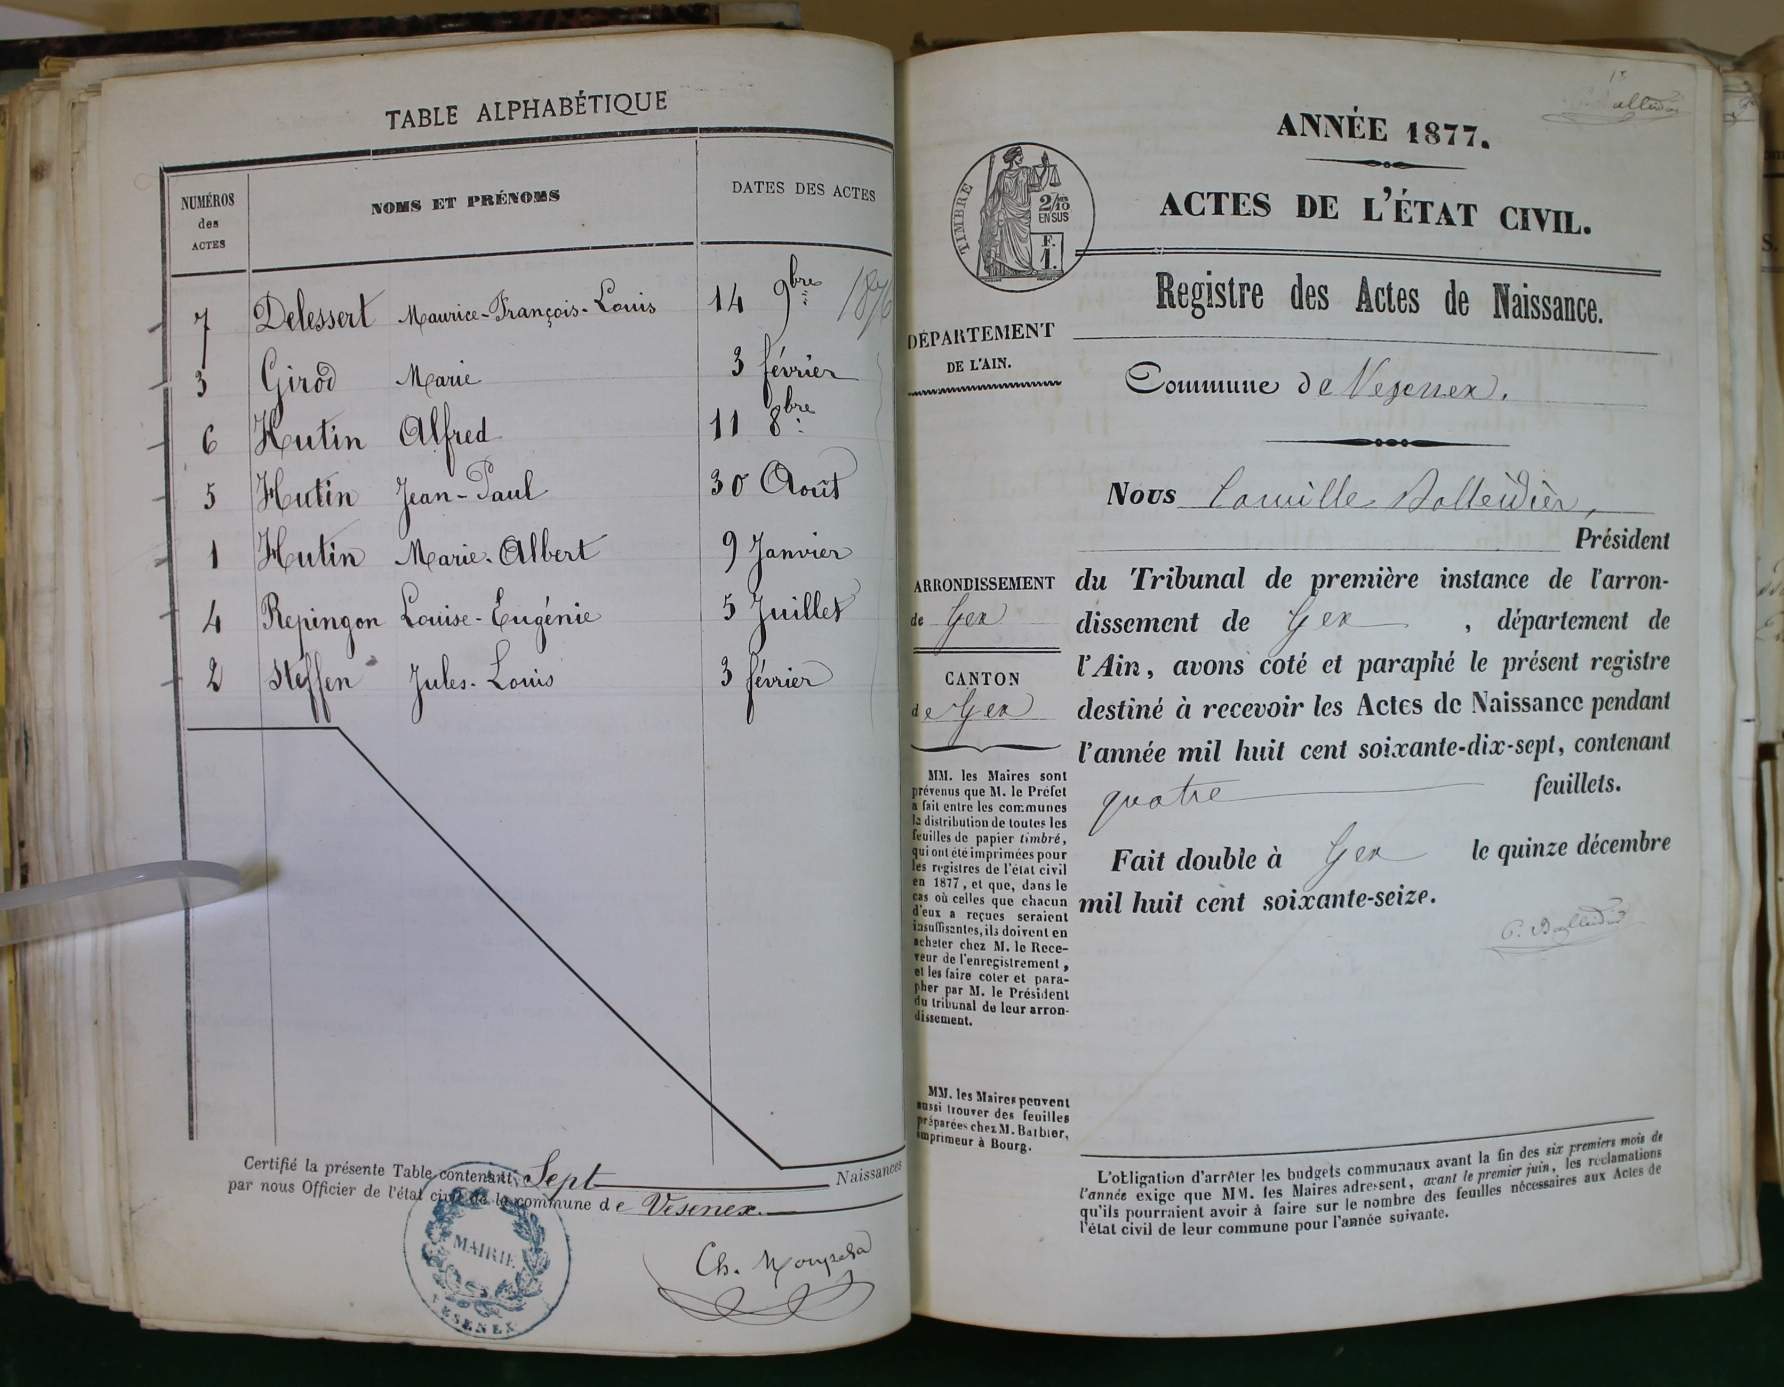 TABLE ALPHABÉTIQUE
NUMÉROS des ACTES NOMS ET PRÉNOMS DATES DES ACTES
7 Delessert Maurice-François-Louis 14 9bre 1876
3 Girod Marie 3 février
6 Hutin Alfred 11 8bre
5 Hutin Jean-Paul 30 Août
1 Hutin Marie-Albert 9 Janvier
4 Repingon Louise-Eugénie 5 Juillet
2 Steffen Jules-Louis 3 février
Certifié la présente Table contenant Sept Naissances
par nous Officier de l'état civil de la commune de Vesenex.
MAIRIE
VESENEX
Ch.
ANNÉE 1877.
ACTES DE L'ÉTAT CIVIL.
TIMBRE
2/10 EN SUS
F. 1.
Registre des Actes de Naissance.
DÉPARTEMENT
DE L'AIN.
Commune de Vesenex.
Nous Camille Balleidier,
Président
ARRONDISSEMENT
de Gex
CANTON
de Gex
du Tribunal de première instance de l'arron-
dissement de Gex , département de
l'Ain, avons coté et paraphé le présent registre
destiné à recevoir les Actes de Naissance pendant
l'année mil huit cent soixante-dix-sept, contenant
quatre feuillets.
Fait double à Gex le quinze décembre
mil huit cent soixante-seize.
C. Balleidier
MM. les Maires sont
prévenus que M. le Préfet
a fait entre les communes
la distribution de toutes les
feuilles de papier timbré,
qui ont été imprimées pour
les registres de l'état civil
en 1877, et que, dans le
cas où celles que chacun
d'eux a reçues seraient
insuffisantes, ils doivent en
acheter chez M. le Rece-
veur de l'enregistrement,
et les faire coter et para-
pher par M. le Président
du tribunal de leur arron-
dissement.
MM. les Maires peuvent
aussi trouver des feuilles
préparées chez M. Barbier,
imprimeur à Bourg.
L'obligation d'arrêter les budgets communaux avant la fin des six premiers mois de
l'année exige que MM. les Maires adressent, avant le premier juin, les réclamations
qu'ils pourraient avoir à faire sur le nombre des feuilles nécessaires aux Actes de
l'état civil de leur commune pour l'année suivante.